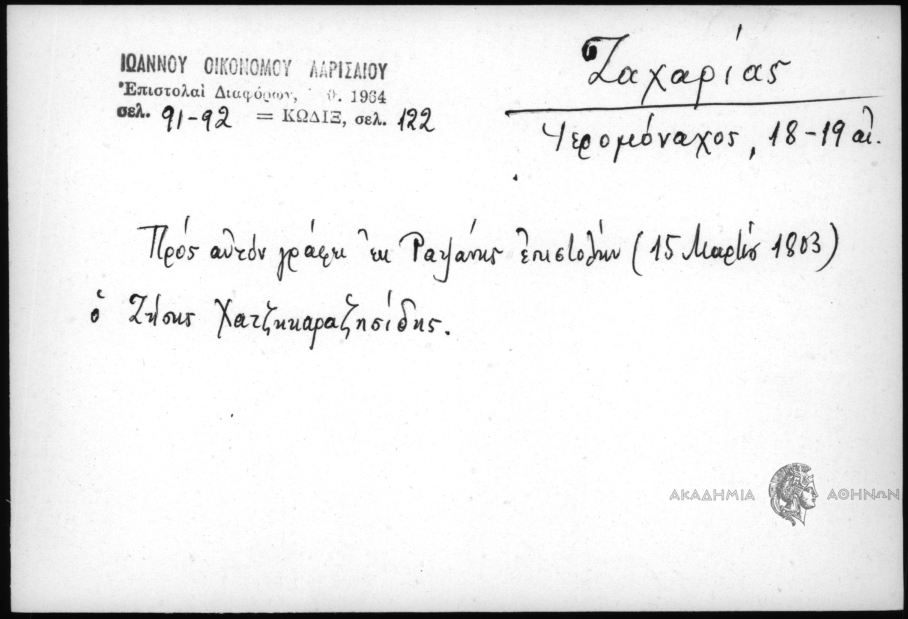 ΙΩΑΝΝΟΥ ΟΙΚΟΝΟΜΟΥ ΛΑΡΙΣΑΙΟΥ
Ἐπιστολαὶ Διαφόρων, 1964
σελ. 91-92 = ΚΩΔΙΞ, σελ. 122
Ζαχαρίας
Ἱερομόναχος, 18-19 αἰ.
Πρός αὐτόν γράφει ἐκ Ραψάνης ἐπιστολήν (15 Μαρτίου 1803)
ὁ Ζήσης Χατζηκαραζησίδης.
ΑΚΑΔΗΜΙΑ ΑΘΗΝΩΝ